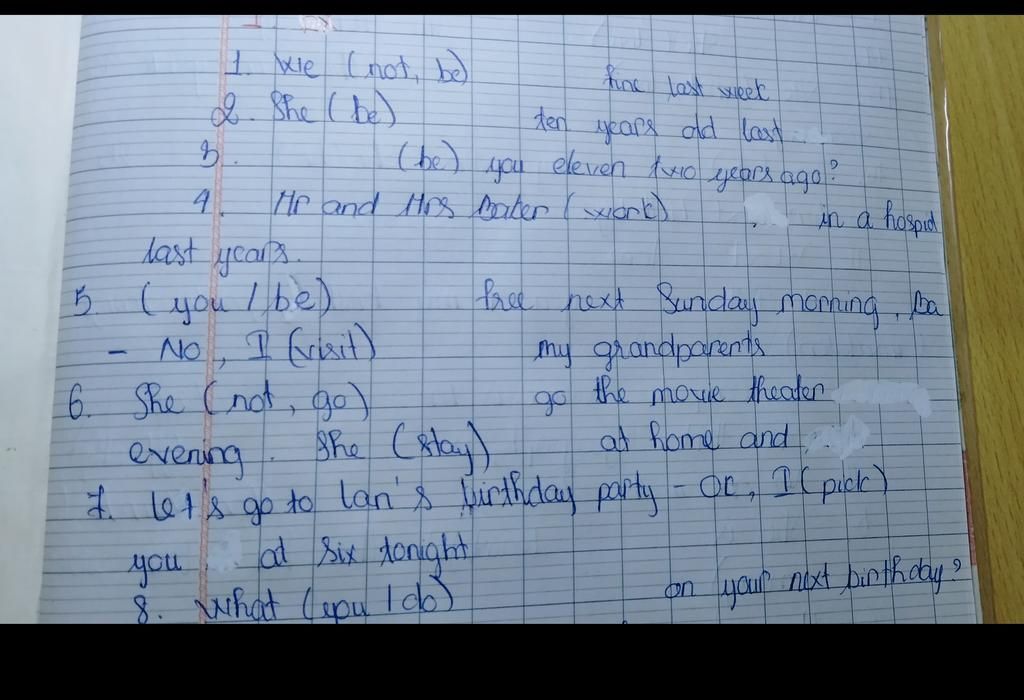 1. We (not, be) fine last week
2. She (be) ten years old last
3. (be) you eleven two years ago?
4. Mr and Mrs Dater (work) in a hospid
last years.
5. (you / be) free next Sunday morning, Ba
- No, I (visit) my grandparents
6. She (not, go) go the movie theater
evening. She (stay) at home and
7. Let's go to Lan's birthday party - OK, I (pick)
you at six tonight
8. What (you / do) on your next birthday?